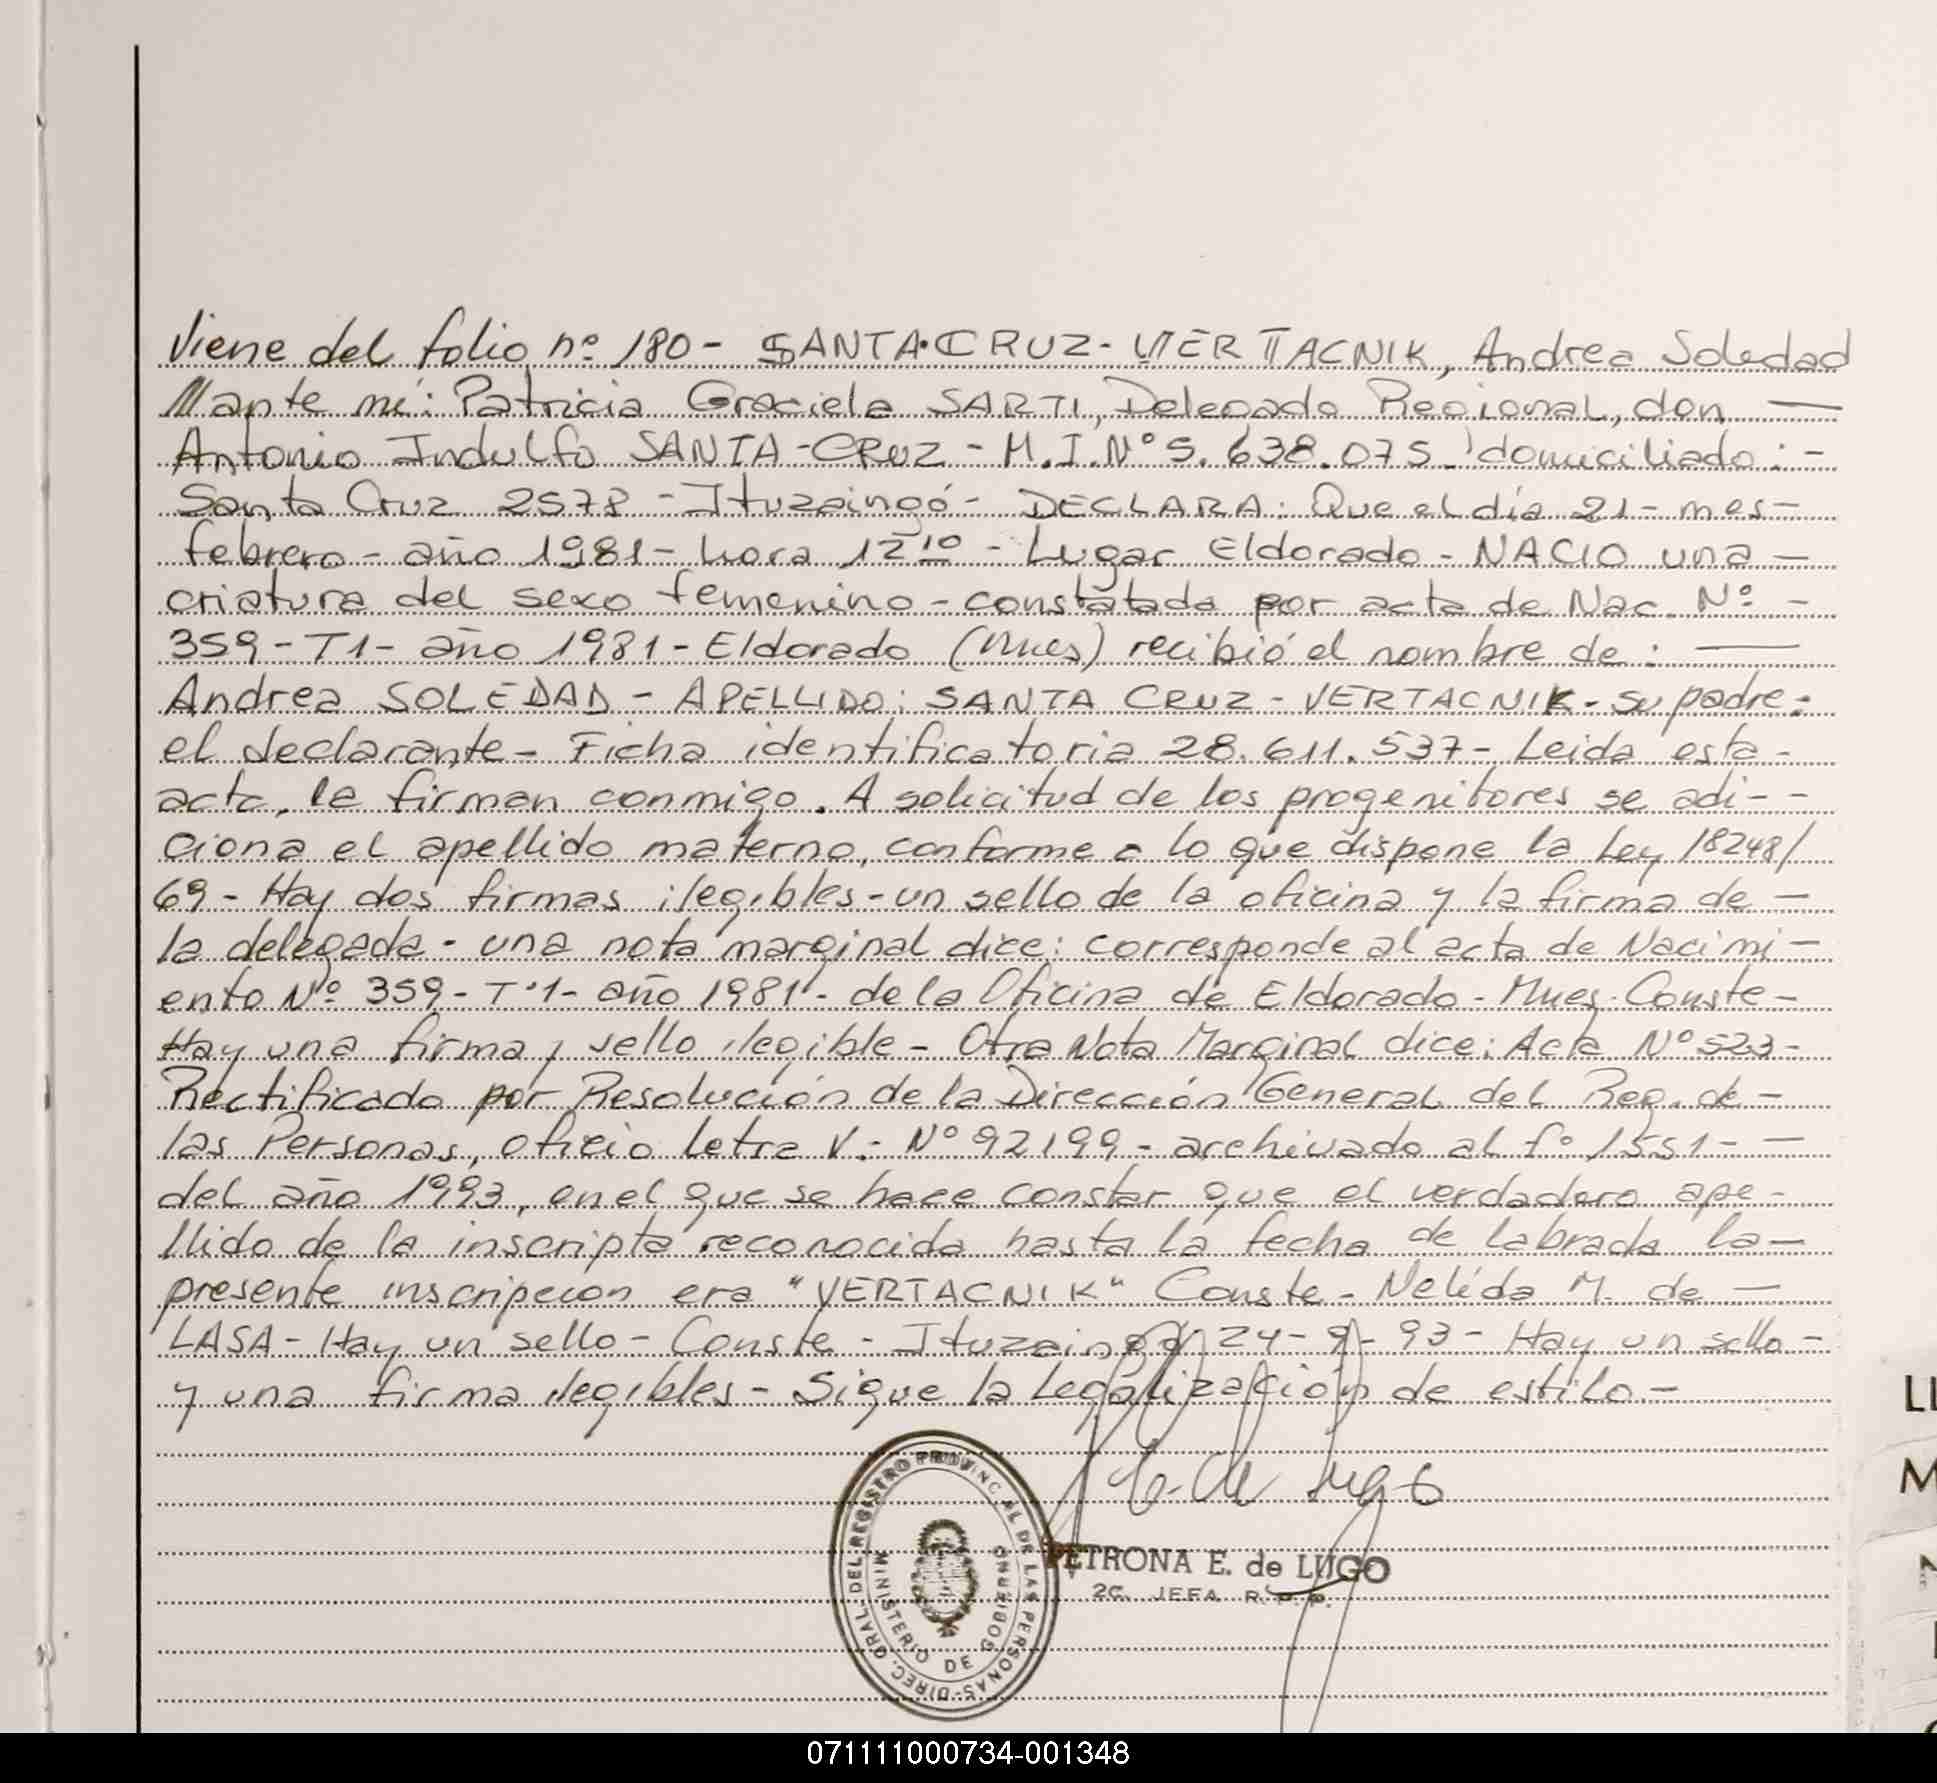 Viene del folio nº 180- SANTA-CRUZ-VERTACNIK, Andrea Soledad
//ante mí: Patricia Graciela SARTI, Delegado Regional, don —
Antonio Indulfo SANTA-CRUZ - M.I.Nº 5.638.075- domiciliado: -
Santa Cruz 2578 - Ituzaingó - DECLARA: Que el día 21- mes-
febrero - año 1981 - hora 12 10 - Lugar Eldorado - NACIO una -
criatura del sexo femenino - constatada por acta de Nac. Nº -
359-T1- año 1981 - Eldorado (Mnes) recibió el nombre de: —
Andrea SOLEDAD - APELLIDO: SANTA CRUZ - VERTACNIK - su padre:
el declarante - Ficha identificatoria 28.611.537- Leida esta -
acta, la firman conmigo. A solicitud de los progenitores se adi- -
ciona el apellido materno, conforme a lo que dispone la Ley 18248/
69 - Hay dos firmas ilegibles - un sello de la oficina y la firma de -
la delegada - una nota marginal dice: corresponde al acta de Nacimi -
ento Nº 359 - T·1- año 1981 - de la Oficina de Eldorado - Mnes. Conste -
Hay una firma y sello ilegible - Otra Nota Marginal dice: Acta Nº 523 -
Rectificado por Resolución de la Dirección General del Reg. de -
las Personas, oficio letra V.- Nº 92199 - archivado al fº 1551- —
del año 1993, en el que se hace constar que el verdadero ape -
llido de la inscripta reconocida hasta la fecha de labrada la -
presente inscripcion era "VERTACNIK" Conste - Nelida M. de —
LASA - Hay un sello - Conste - Ituzaingó 24-9-93 - Hay un sello -
y una firma ilegibles - Sigue la Legalización de estilo. -
E. de Lugo
DIREC. GRAL. DEL REGISTRO PROVINCIAL DE LAS PERSONAS
MINISTERIO DE GOBIERNO
PETRONA E. de LUGO
2a. JEFA R. P. P.
071111000734-001348